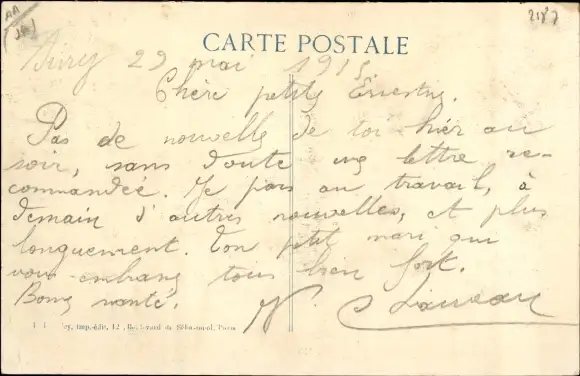 AA
2187
CARTE POSTALE
29 mai 1915
Chère petite Ernestine.
Pas de nouvelle de toi hier au
soir, sans doute une lettre re-
commandée. Je pars au travail, à
demain d'autres nouvelles, et plus
longuement. Ton ptit mari qui
vous embrasse tous bien fort.
Bonne santé.
Imp.-édit., 12, Boulevard de Sébastopol, Paris